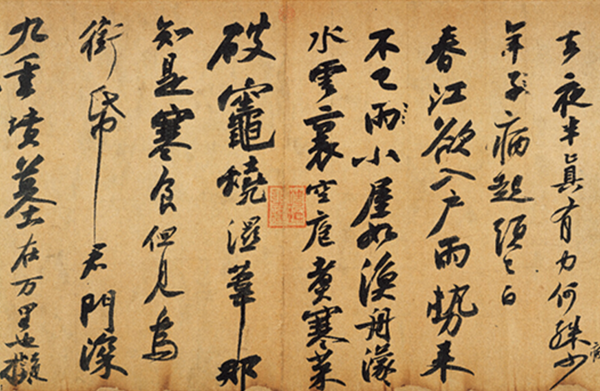 去夜半真有力何殊少病
年子病起頭已白
春江欲入戶雨勢來
不已雨小屋如漁舟濛
水雲裏空庖煮寒菜
破竈燒濕葦那
知是寒食但見烏
銜帋君門深
九重墳墓在万里也擬